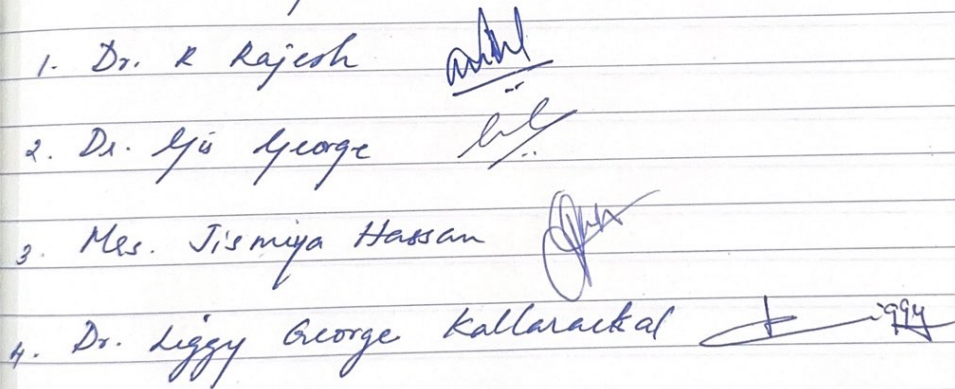 1. Dr. R Rajesh
2. Dr. George
3. Mrs. Jismiya Hassan
4. Dr. Liggy George Kallarackal Liggy